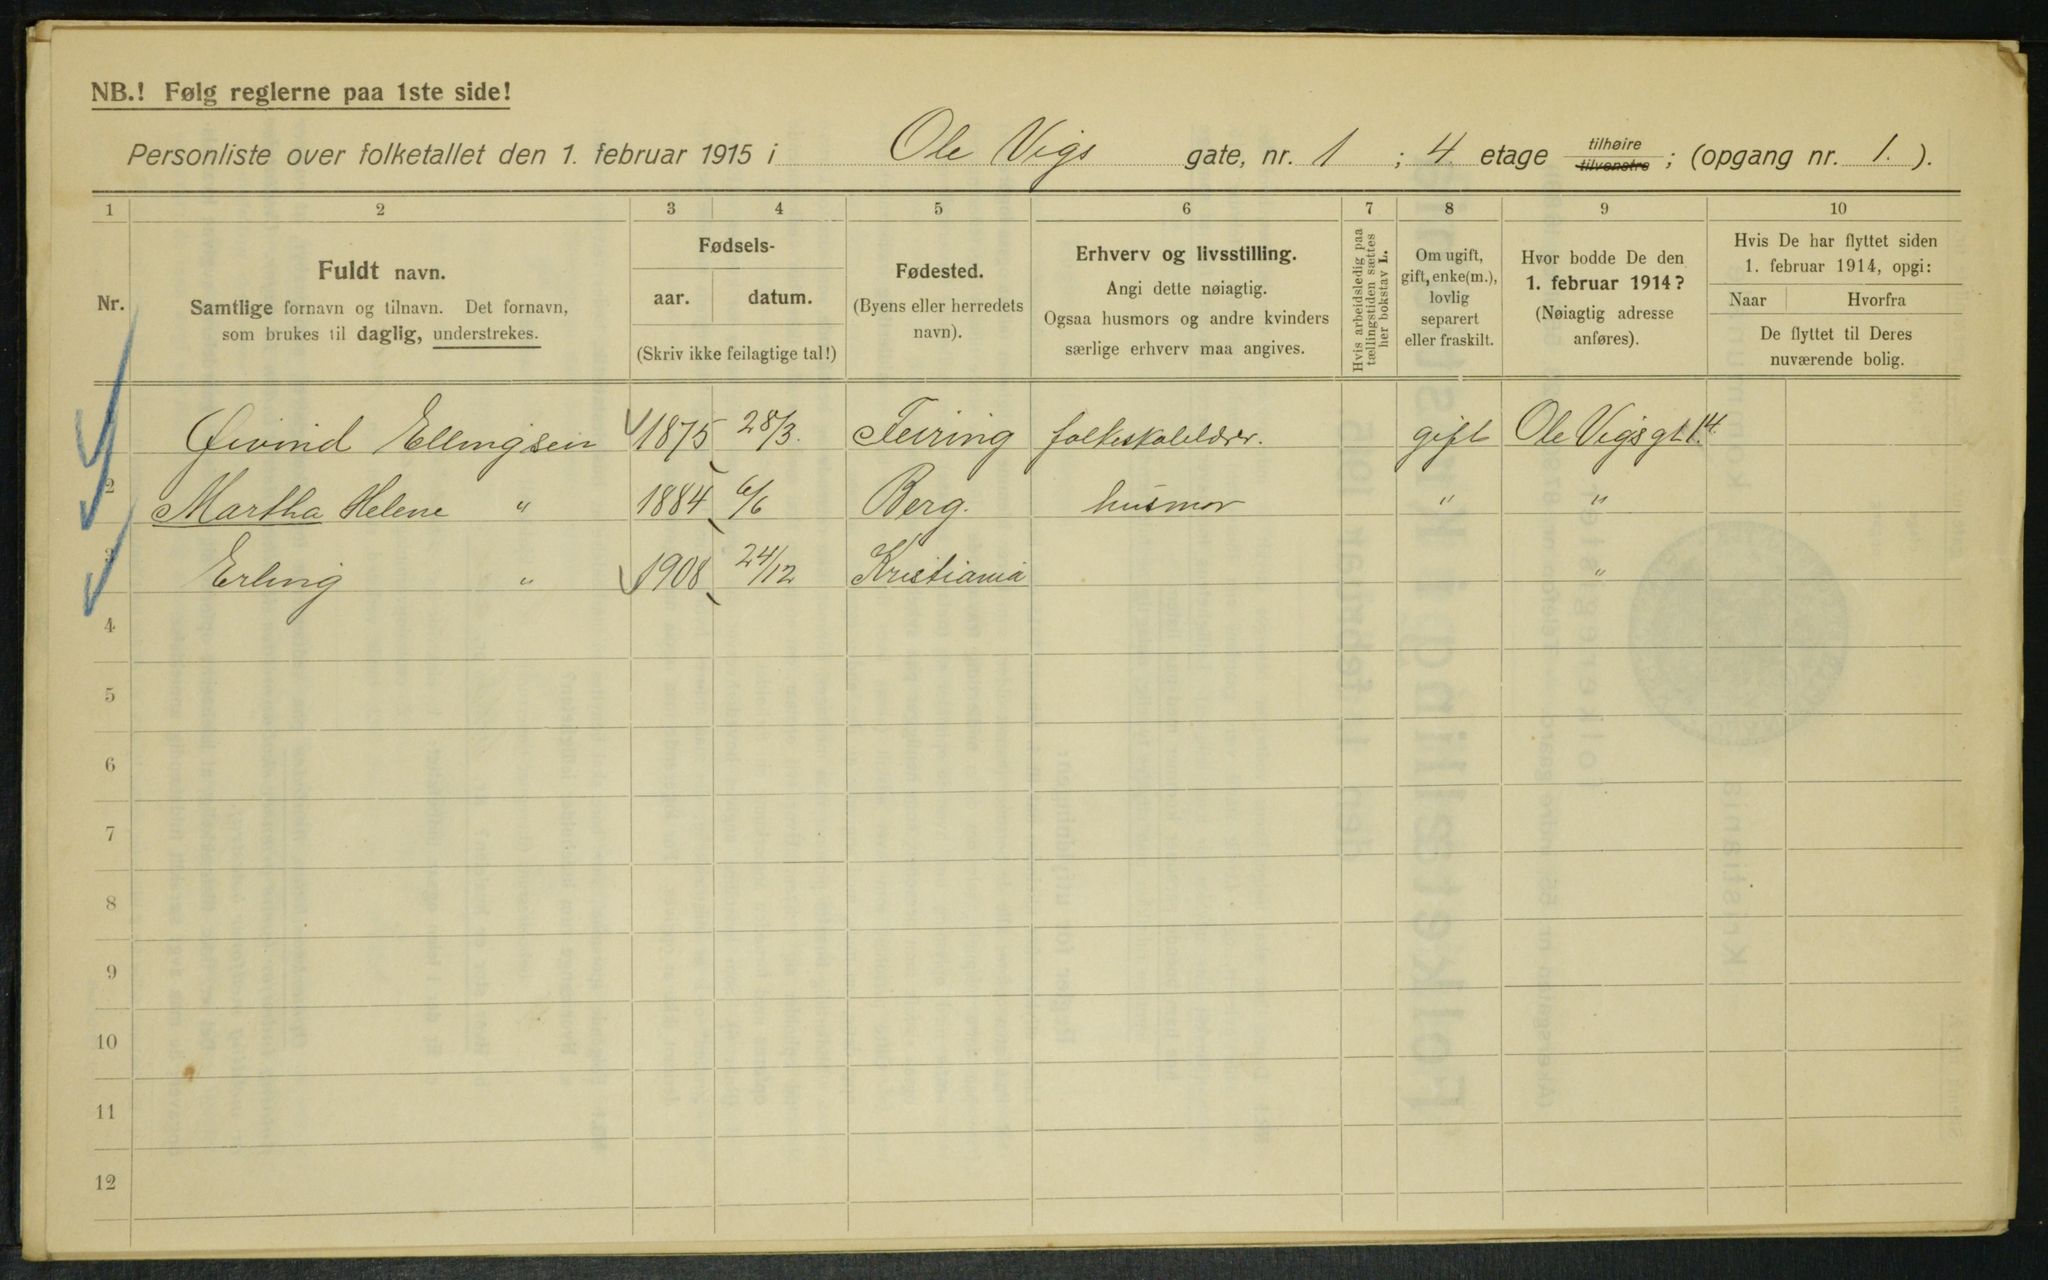 NB.! Følg reglerne paa 1ste side!
Personliste over folketallet den 1. februar 1915 i Ole Vigs gate, nr. 1 ; 4. etage tilhøire tilvenstre ; (opgang nr. 1. ).
1 2 3 4 5 6 7 8 9 10
Nr.
Fuldt navn.
Samtlige fornavn og tilnavn. Det fornavn,
som brukes til daglig, understrekes.
Fødsels-
aar. datum.
(Skriv ikke feilagtige tal!)
Fødested.
(Byens eller herredets
navn).
Erhverv og livsstilling.
Angi dette nøiagtig.
Ogsaa husmors og andre kvinders
særlige erhverv maa angives.
Hvis arbeidsledig paa
tællingstiden sættes
her bokstav L.
Om ugift,
gift, enke(m.),
lovlig
separert
eller fraskilt.
Hvor bodde De den
1. februar 1914?
(Nøiagtig adresse
anføres).
Hvis De har flyttet siden
1. februar 1914, opgi:
Naar Hvorfra
De flyttet til Deres
nuværende bolig.
Øivind Ellingsen 1875 28/3. Feiring folkeskolelærer. gift Ole Vigsgt 1.4.
2 Martha Helene " 1884 6/6 Berg. husmor " "
3 Erling " 1908 24/12 Kristiania "
4
5
6
7
8
9
10
11
12